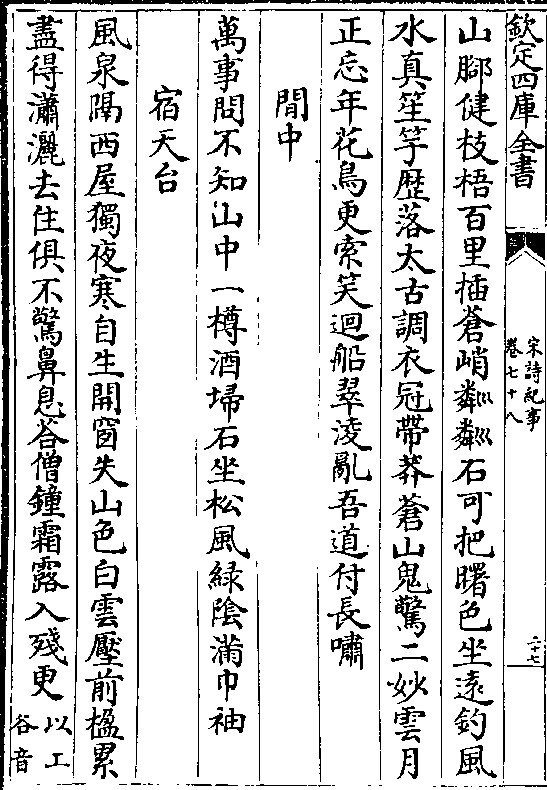 欽定四庫全書
宋詩紀事
卷七十八
二十七
山腳健枝梧百里插蒼峭粼粼石可把曙色坐遠釣風
水真笙竽歴落太古調衣冠帶莽蒼山鬼驚二妙雲月
正忘年花鳥更索笑迴船翠淩亂吾道付長嘯
閒中
萬事問不知山中一樽酒埽石坐松風緑隂滿巾袖
宿天台
風泉隔西屋獨夜寒自生開窗失山色白雲壓前楹累
盡得瀟灑去住俱不驚鼻息答僧鐘霜露入殘更
以工
谷音